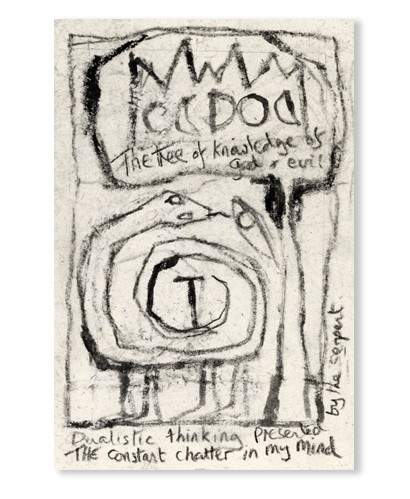 The Tree of Knowledge of
god & evil
T
by the Serpent.
Dualistic thinking Presented
THE constant chatter in my Mind